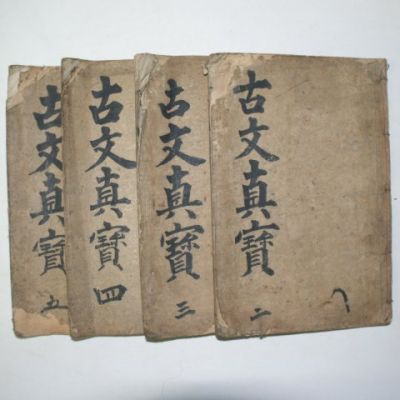 古文真寶 二
古文真寶 三
古文真寶 四
古文真寶 五